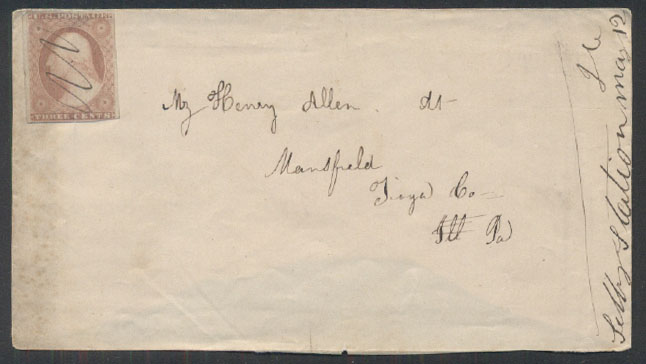 U.S. POSTAGE
THREE CENTS
Mr Henry Allen. At
Mansfield
Tioga Co
Ill Pa
Selby Station May 12
Ils